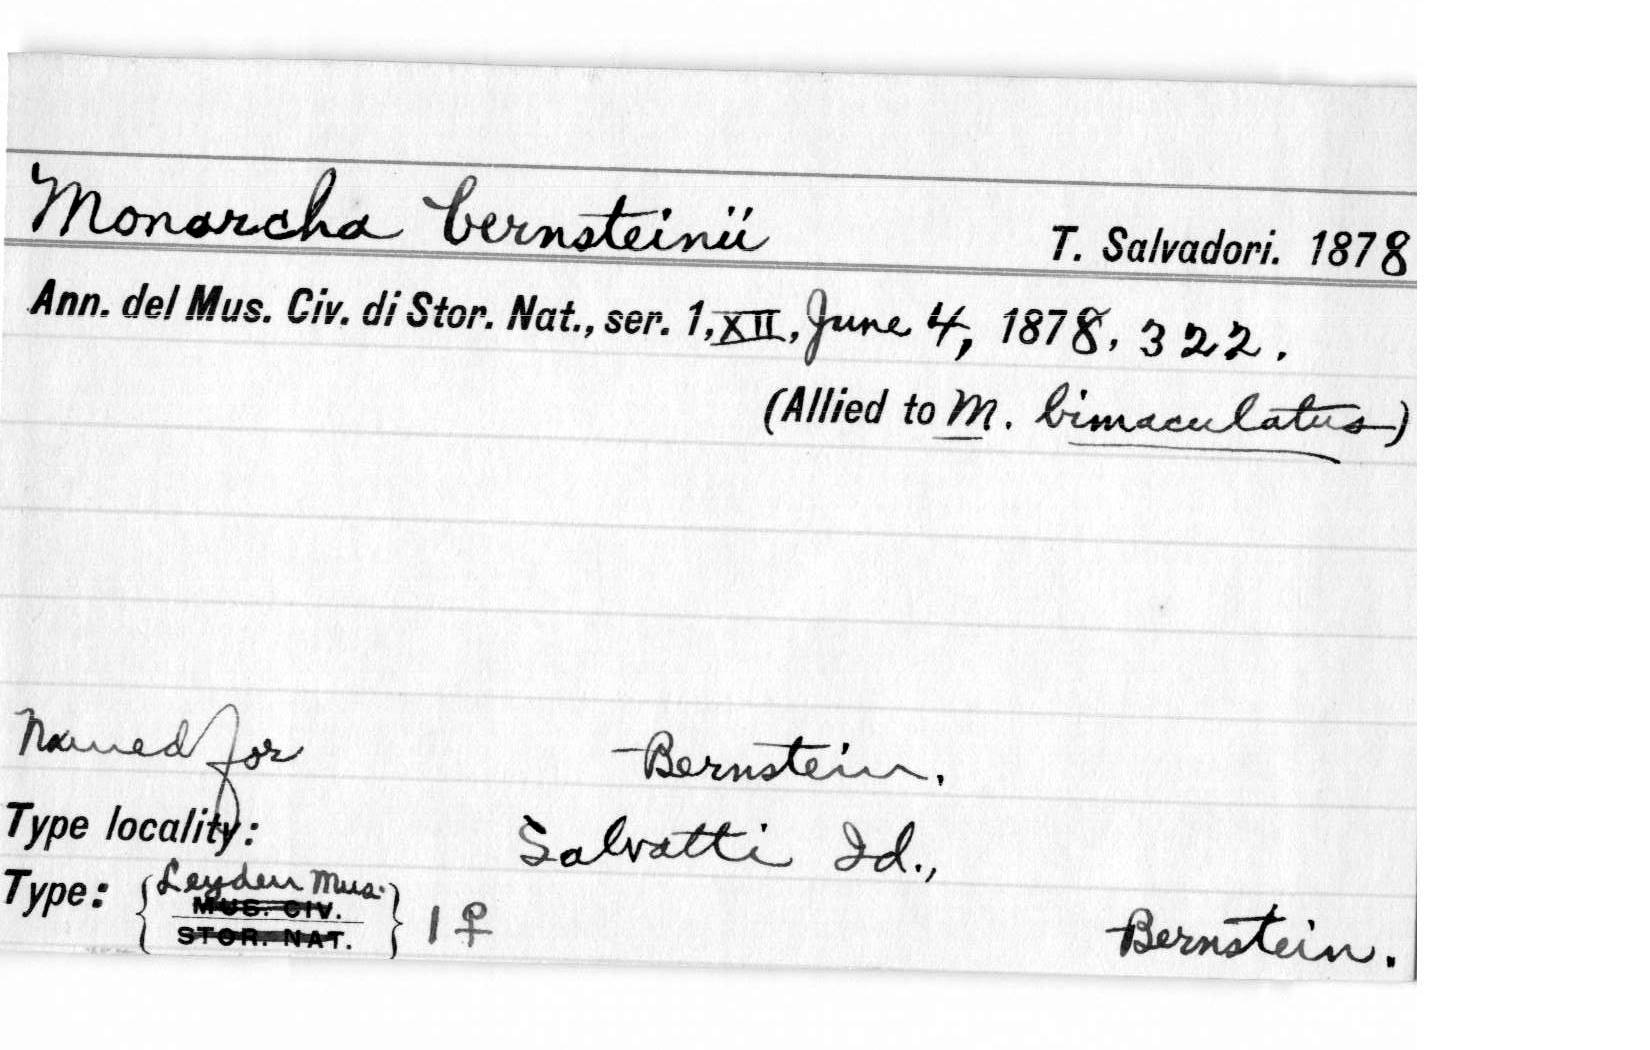 Monarcha bernsteinii T. Salvadori. 1878
Ann. del Mus. Civ. di Stor. Nat., ser. 1, XII, June 4, 1878, 322.
(Allied to M. bimaculatus)
Named for Bernstein.
Type locality: Salvatti Id.,
Type: { Leyden Mus.
MUS. CIV.
STOR. NAT. } 1 ♀ Bernstein.